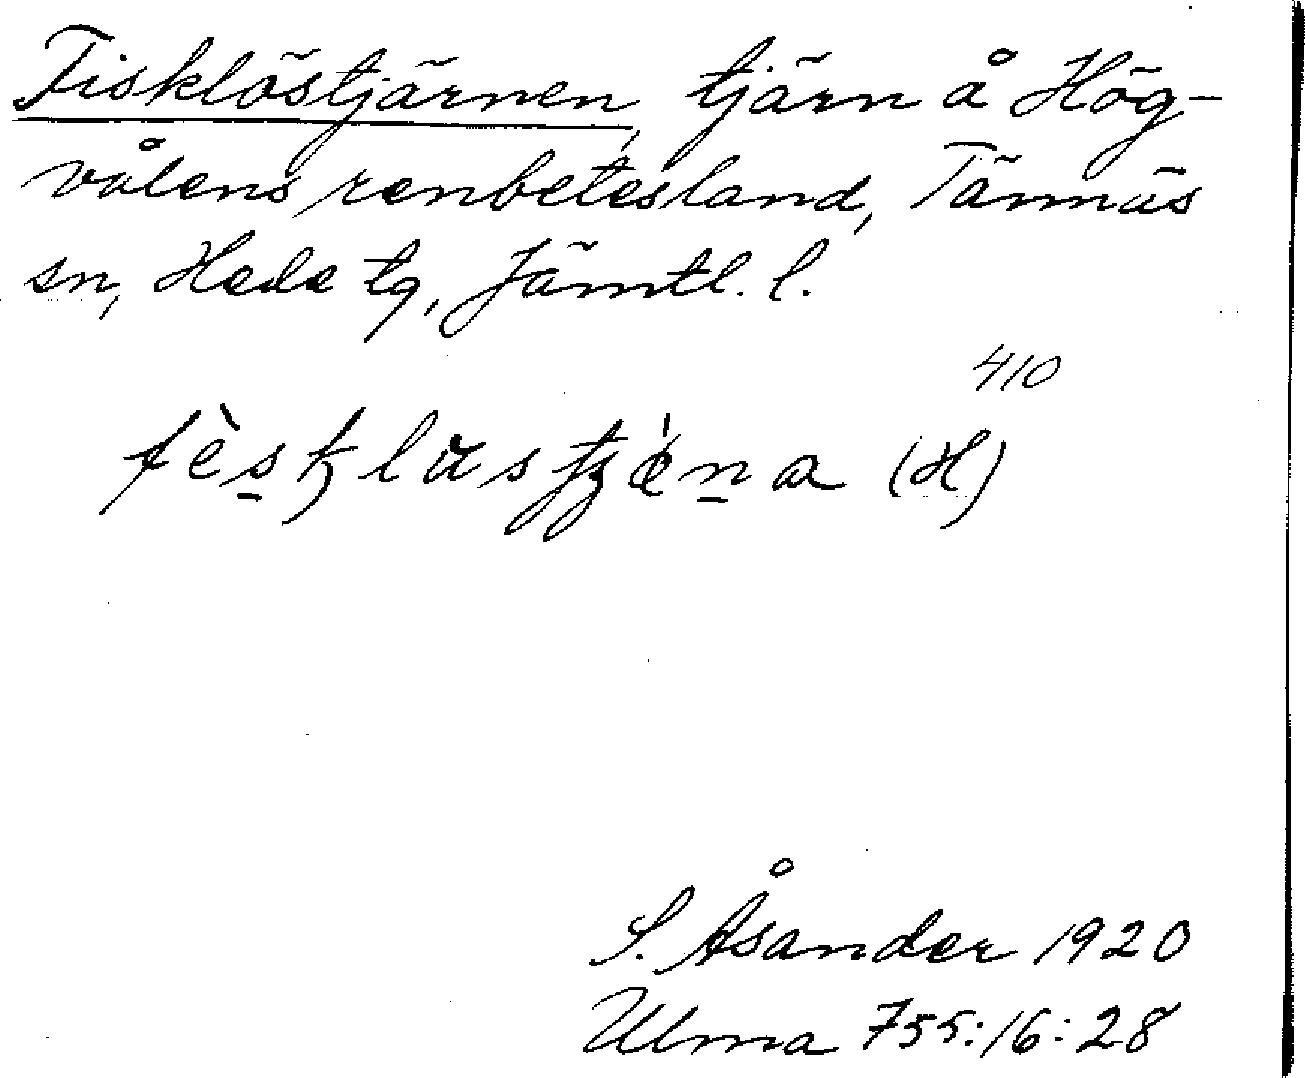 Fisklöstjärnen, tjärn å Hög-
vålens renbetesland, Tännäs
sn, Hede tg, Jämtl. l.
410
(H)
S. Åsander 1920
Ulma 755:16:28